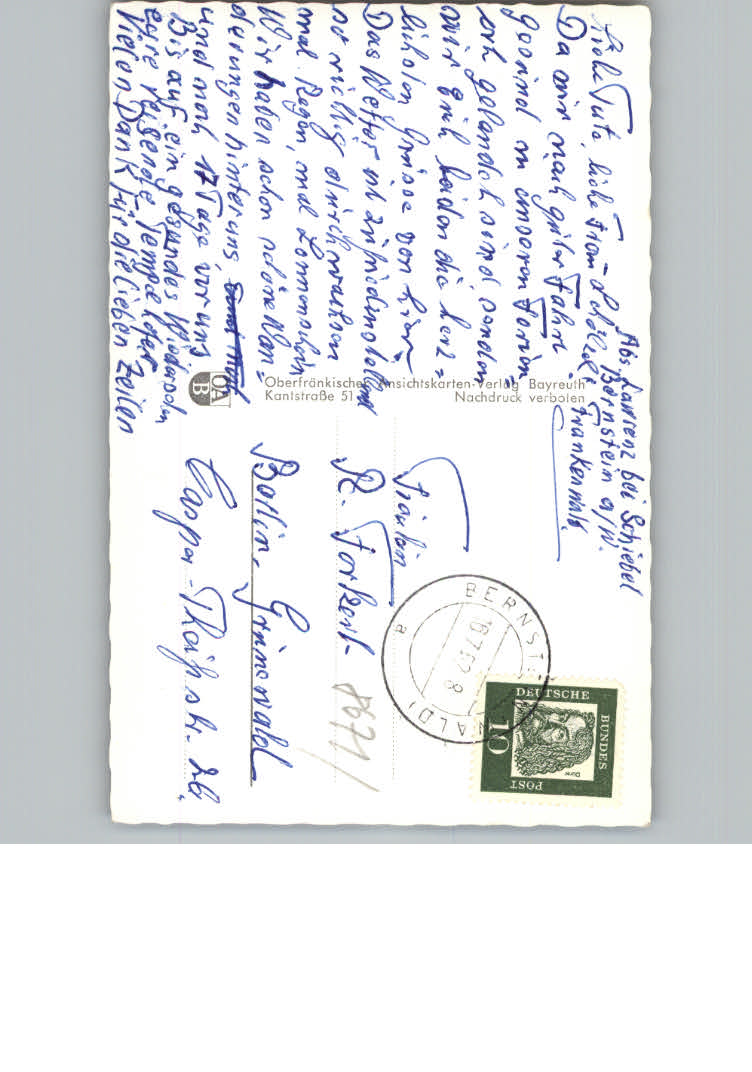 Liebe Tuta, liebe Frau
Da wir nach guter Fahrt
gesund in unserem Ferien=
ort gelandet sind senden
wir Euch beiden die herz=
lichsten Grüsse von hier.
Das Wetter ist zufriedenstellend
so richtig durchwachsen
mal Regen, mal Sonnenschein
Wir haben schon schöne Wan=
derungen hinter uns
und noch 17 Tage vor uns
Bis auf ein gesundes Wiedersehn
eure reisende Tempelhofer
Vielen Dank für die lieben Zeilen
Abs. Lawrenz bei Schiebel
Bernstein a/W.
Frankenwald
Oberfränkischer Ansichtskarten-Verlag Bayreuth
Kantstraße 51
Nachdruck verboten
OA
B
Fräulein
R.
Berlin, Grunewald
Caspar-Theyß-Str. 26.
8671
BERNST WALD)
16.7.62-8
a
DEUTSCHE
BUNDES
POST
10
Dürer